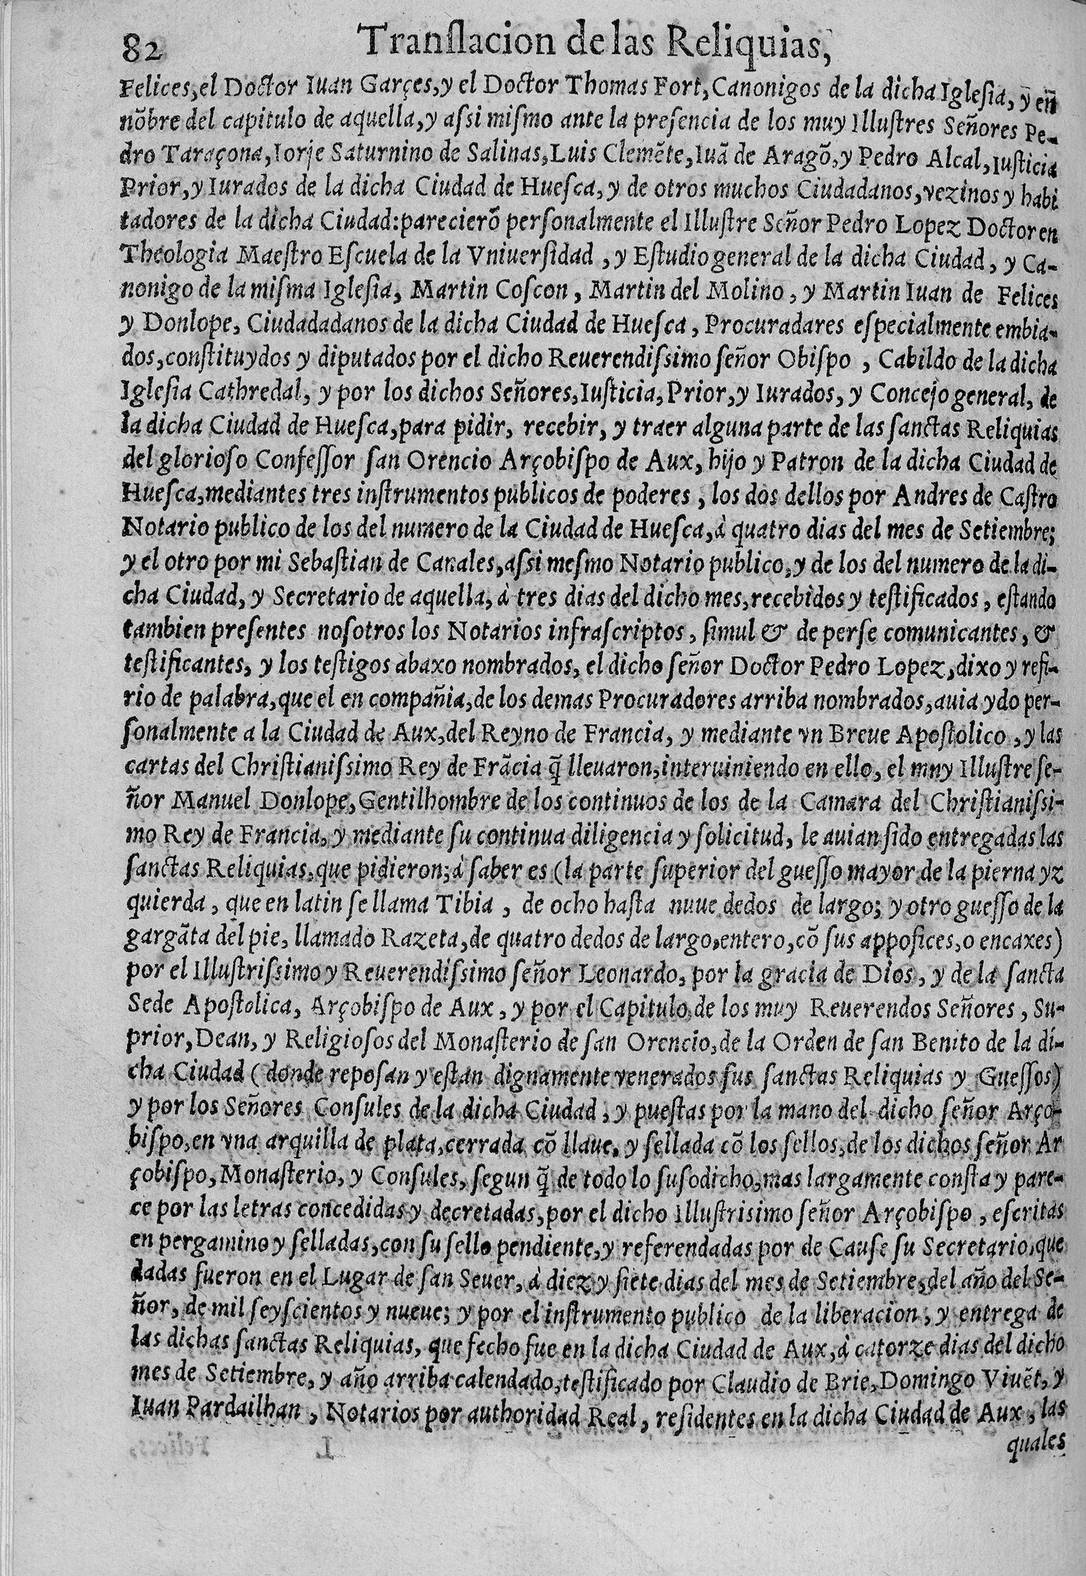 82 Translacion de las Reliquias,
Felices, el Doctor Iuan Garçes, y el Doctor Thomas Fort, Canonigos de la dicha Iglesia, y en
nõbre del capitulo de aquella, y assi mismo ante la presencia de los muy Illustres Señores Pe-
dro Taraçona, Iorje Saturnino de Salinas, Luis Clemẽte, Iuã de Aragõ, y Pedro Alcal, Iusticia
Prior, y Iurados de la dicha Ciudad de Huesca, y de otros muchos Ciudadanos, vezinos y habi
tadores de la dicha Ciudad: parecierõ personalmente el Illustre Señor Pedro Lopez Doctor en
Theologia Maestro Escuela de la Vniuersidad, y Estudio general de la dicha Ciudad, y Ca-
nonigo de la misma Iglesia, Martin Coscon, Martin del Molino, y Martin Iuan de Felices
y Donlope, Ciudadadanos de la dicha Ciudad de Huesca, Procuradares especialmente embia-
dos, constituydos y diputados por el dicho Reuerendissimo señor Obispo, Cabildo de la dicha
Iglesia Cathredal, y por los dichos Señores, Iusticia, Prior, y Iurados, y Concejo general, de
la dicha Ciudad de Huesca, para pidir, recebir, y traer alguna parte de las sanctas Reliquias
del glorioso Confessor san Orencio Arçobispo de Aux, hijo y Patron de la dicha Ciudad de
Huesca, mediantes tres instrumentos publicos de poderes, los dos dellos por Andres de Castro
Notario publico de los del numero de la Ciudad de Huesca, à quatro dias del mes de Setiembre;
y el otro por mi Sebastian de Canales, assi mesmo Notario publico, y de los del numero de la di-
cha Ciudad, y Secretario de aquella, à tres dias del dicho mes, recebidos y testificados, estando
tambien presentes nosotros los Notarios infrascriptos, simul & de perse comunicantes, &
testificantes, y los testigos abaxo nombrados, el dicho señor Doctor Pedro Lopez, dixo y refi-
rio de palabra, que el en compañia, de los demas Procuradores arriba nombrados, auia ydo per-
sonalmente a la Ciudad de Aux, del Reyno de Francia, y mediante vn Breue Apostolico, y las
cartas del Christianissimo Rey de Frãcia q̃ lleuaron, interuiniendo en ello, el muy Illustre se-
ñor Manuel Donlope, Gentilhombre de los continuos de los de la Camara del Christianissi-
mo Rey de Francia, y mediante su continua diligencia y solicitud, le auian sido entregadas las
sanctas Reliquias, que pidieron; à saber es (la parte superior del guesso mayor de la pierna yz
quierda, que en latin se llama Tibia, de ocho hasta nuue dedos de largo; y otro guesso de la
gargãta del pie, llamado Razeta, de quatro dedos de largo, entero, cõ sus appofices, o encaxes)
por el Illustrissimo y Reuerendissimo señor Leonardo, por la gracia de Dios, y de la sancta
Sede Apostolica, Arçobispo de Aux, y por el Capitulo de los muy Reuerendos Señores, Su-
prior, Dean, y Religiosos del Monasterio de san Orencio, de la Orden de san Benito de la di-
cha Ciudad (donde reposan y estan dignamente venerados sus sanctas Reliquias y Guessos)
y por los Señores Consules de la dicha Ciudad, y puestas por la mano del dicho señor Arço-
bispo, en vna arquilla de plata, cerrada cõ llaue, y sellada cõ los sellos, de los dichos señor Ar
çobispo, Monasterio, y Consules, segun q̃ de todo lo susodicho, mas largamente consta y pare-
ce por las letras concedidas y decretadas, por el dicho Illustrisimo señor Arçobispo, escritas
en pergamino y selladas, con su sello pendiente, y referendadas por de Cause su Secretario, que
dadas fueron en el Lugar de san Seuer, à diez y siete dias del mes de Setiembre, del año del Se-
ñor, de mil seyscientos y nueue; y por el instrumento publico de la liberacion, y entrega de
las dichas sanctas Reliquias, que fecho fue en la dicha Ciudad de Aux, à catorze dias del dicho
mes de Setiembre, y año arriba calendado, testificado por Claudio de Brie, Domingo Viuẽt, y
Iuan Pardailhan, Notarios por authoridad Real, residentes en la dicha Ciudad de Aux, las
quales